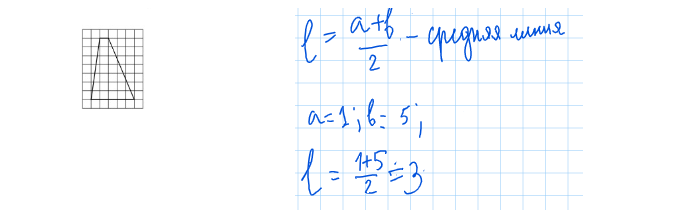 l = a+b/2 – средняя линия
a=1; b= 5;
l = 1+5/2 = 3